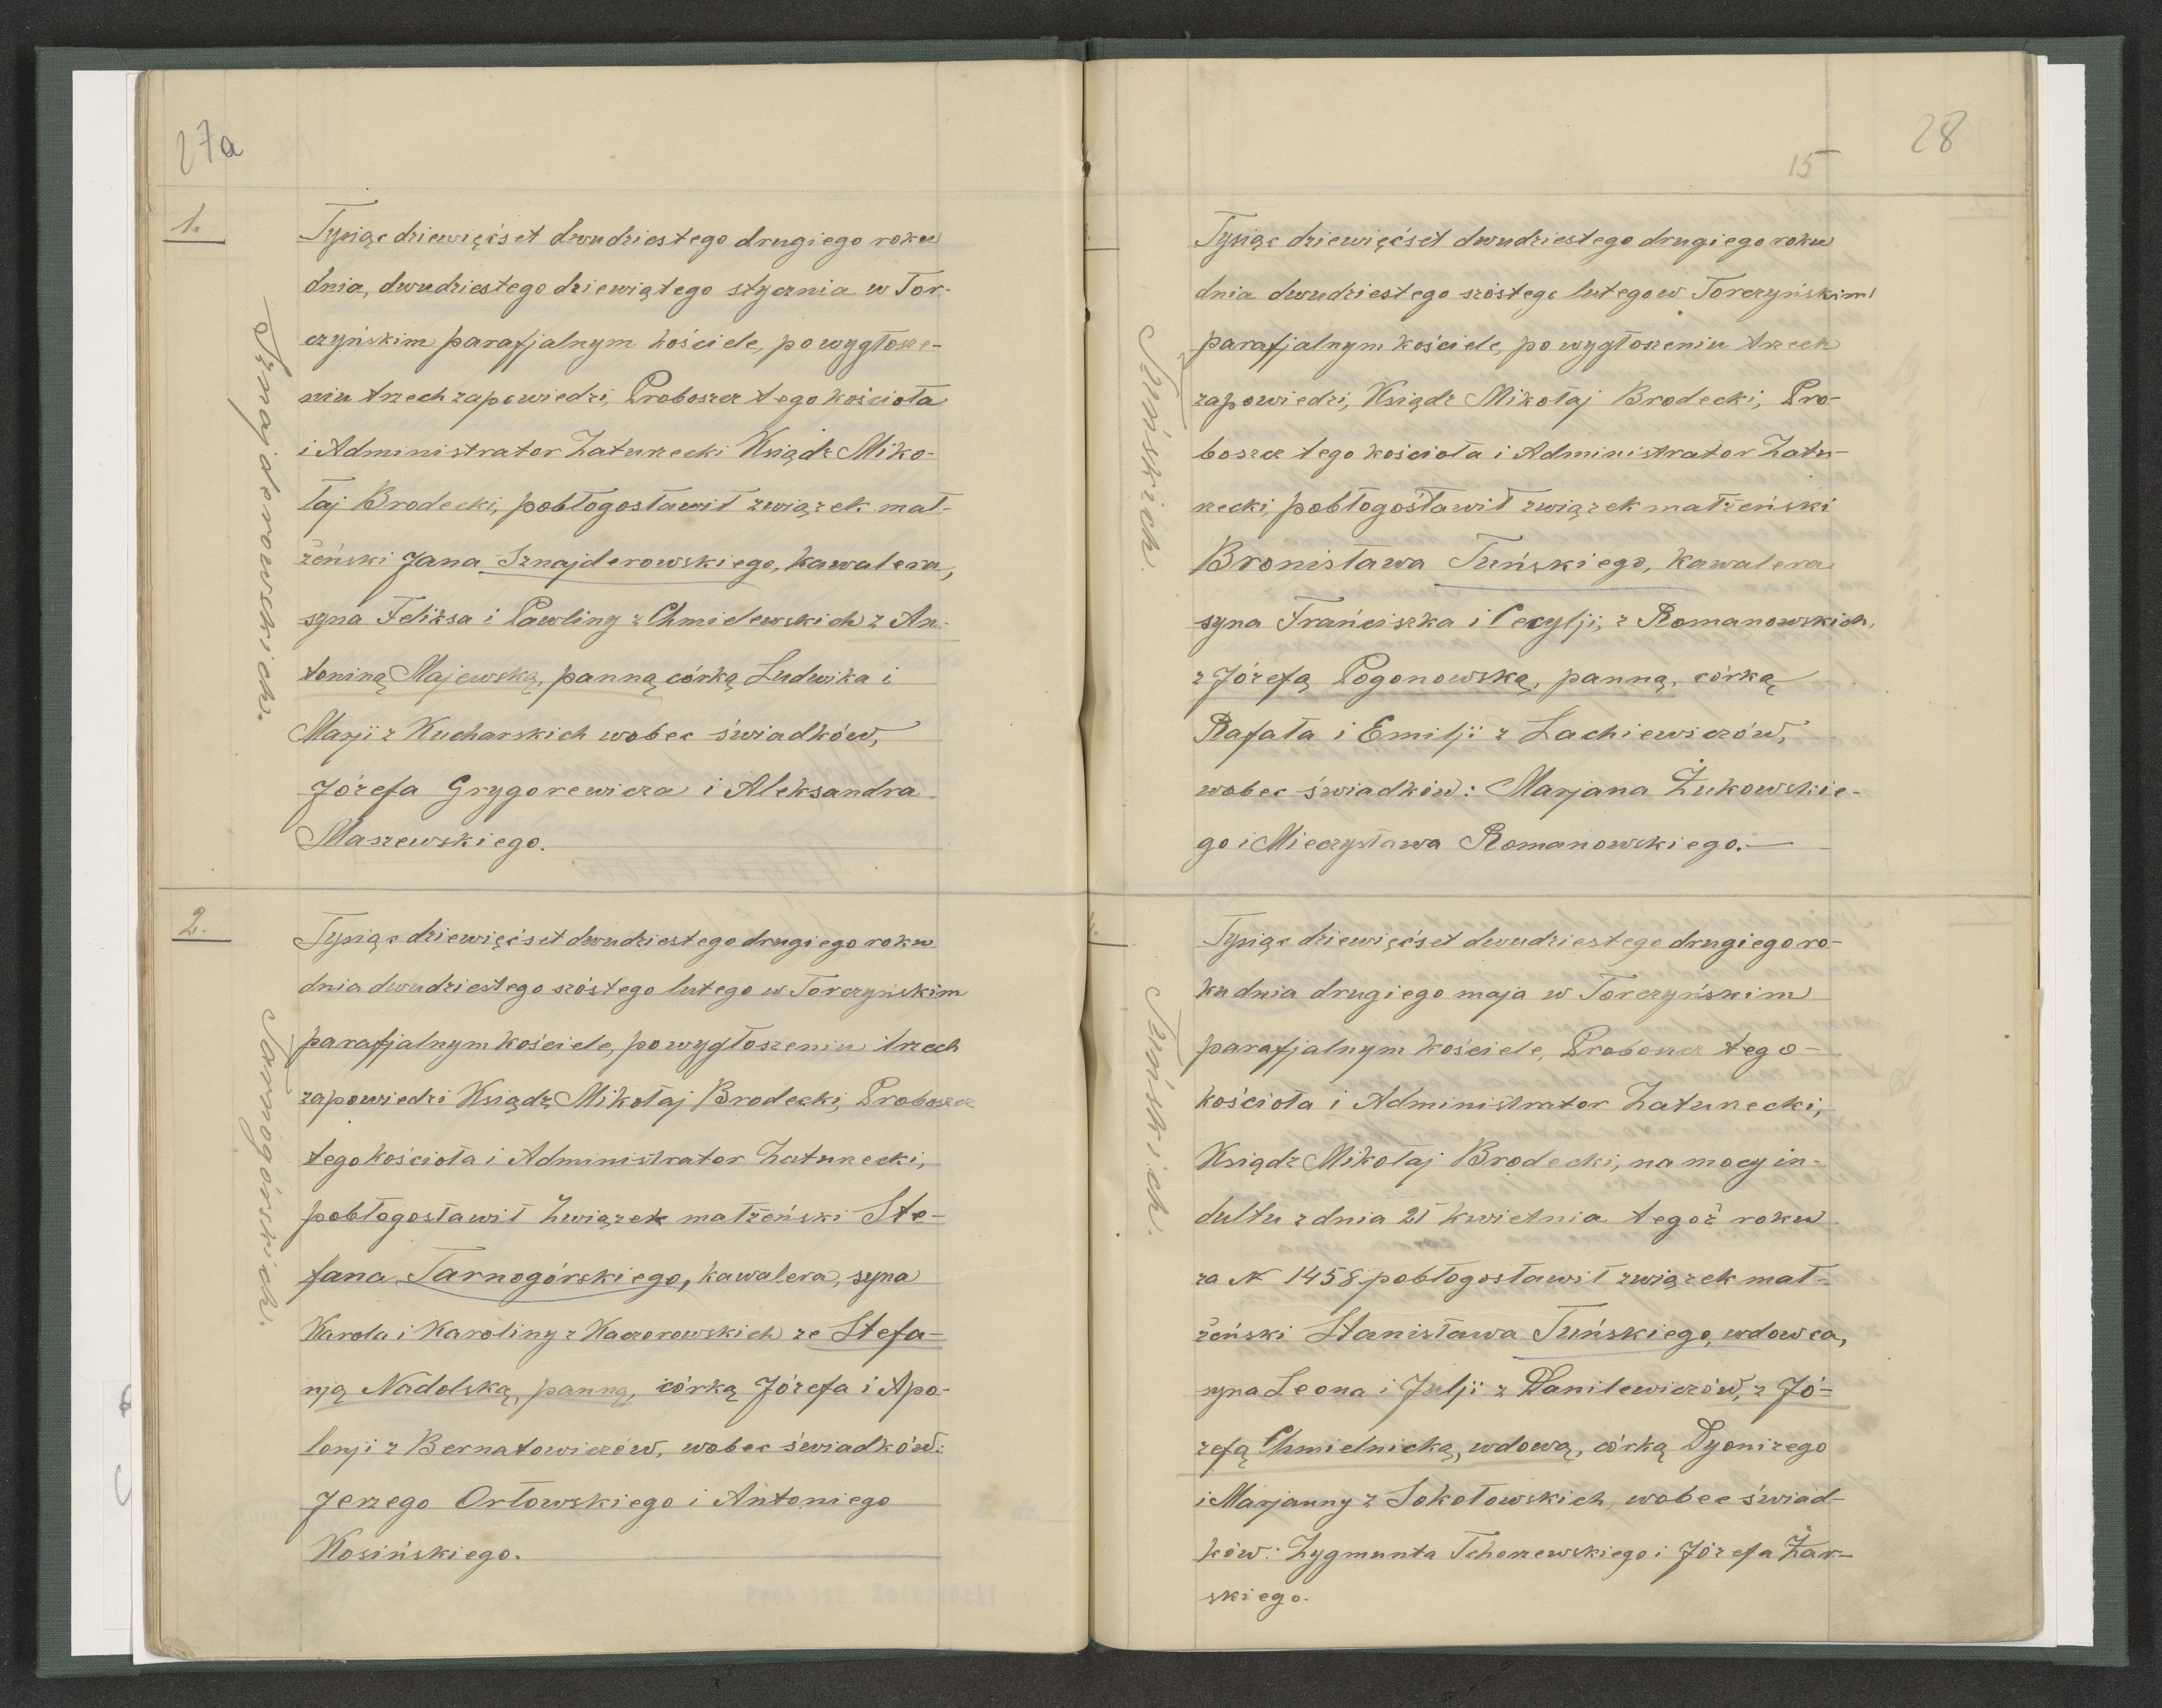 27a
1.
Sznajderowskich.
Tysiąc dziewięćset dwudziestego drugiego roku
dnia, dwudziestego dziewiątego stycznia w Tor-
czyńskim parafjalnym kościele, po wygłosze-
niu trzech zapowiedzi, Proboszcz tego kościoła
i Administrator Zaturzecki Ksiądz Miko-
łaj Brodecki, pobłogosławił związek mał-
żeński Jana Sznajderowskiego, kawalera,
syna Feliksa i Pawliny z Chmielewskich z An-
toniną Majewską, panną córką Ludwika i
Marji z Kucharskich wobec świadków,
Józefa Grygorewicza i Aleksandra
Maszewskiego.
2.
Tarnogórskich.
Tysiąc dziewięćset dwudziestego drugiego roku
dnia dwudziestego szóstego lutego w Torczyńskim
parafjalnym kościele, po wygłoszeniu trzech
zapowiedzi Ksiądz Mikołaj Brodecki, Proboszcz
tego kościoła i Administrator Zaturzecki,
pobłogosławił związek małżeński Ste-
fana Tarnogórskiego, kawalera, syna
Karola i Karoliny z Kaczorowskich ze Stefa-
nją Nadolską, panną, córką Józefa i Apo-
lonji z Bernatowiczów, wobec świadków:
Jerzego Orłowskiego i Antoniego
Kosińskiego.
28
15
Tysiąc dziewięćset dwudziestego drugiego roku
dnia dwudziestego szóstego lutego w Torczyńskim
parafjalnym kościele, po wygłoszeniu trzech
zapowiedzi, Ksiądz Mikołaj Brodecki, Pro-
boszcz tego kościoła i Administrator Zatu-
rzecki, pobłogosławił związek małżeński
Bronisława Tuńskiego, kawalera
syna Franciszka i Cecylji, z Romanowskich,
z Józefą Pogonowską, panną, córką
Rafała i Emilji z Lachiewiczów,
wobec świadków: Marjana Żukowskie-
go i Mieczysława Romanowskiego.—
Tysiąc dziewięćset dwudziestego drugiego ro-
ku dnia drugiego maja w Torczyńskim
parafjalnym kościele, Proboszcz tego
kościoła i Administrator Zaturzecki,
Ksiądz Mikołaj Brodecki, na mocy in-
dultu z dnia 21 kwietnia tegoż roku
za N 1458 pobłogosławił związek mał-
żeński Stanisława Tuńskiego, wdowca,
syna Leona i Julji z Danilewiczów, z Jó-
zefą Chmielnicką, wdową, córką Dyonizego
i Marjanny z Sokołowskich, wobec świad-
ków: Zygmunta Tchorzewskiego i Józefa Żar-
skiego.